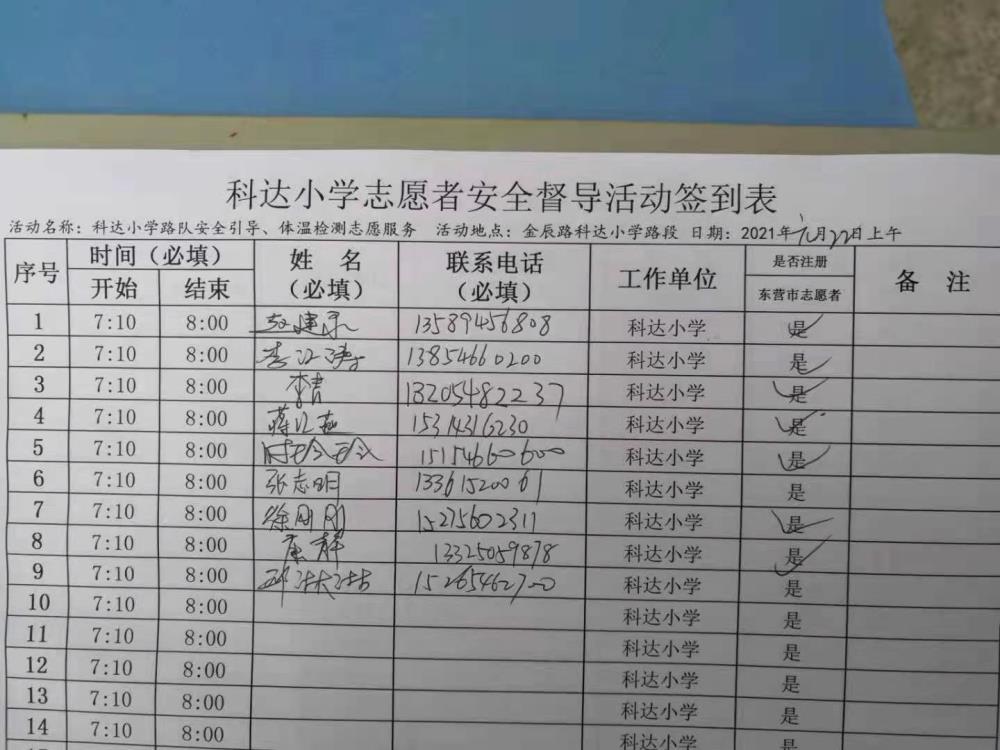 科达小学志愿者安全督导活动签到表
活动名称：科达小学路队安全引导、体温检测志愿服务 活动地点：金辰路科达小学路段 日期：2021年 月22日上午
序号 时间（必填） 姓名（必填） 联系电话（必填） 工作单位 是否注册 备注
开始 结束 东营市志愿者
1 7:10 8:00 赵建承 13589456808 科达小学 是
2 7:10 8:00 李江涛 13854660200 科达小学 是
3 7:10 8:00 李青 18205482237 科达小学 是
4 7:10 8:00 蒋 燕 15314316230 科达小学 是
5 7:10 8:00 时珍珍 15154660600 科达小学 是
6 7:10 8:00 张志明 13361520061 科达小学 是
7 7:10 8:00 徐刚刚 15275602311 科达小学 是
8 7:10 8:00 康静 13325059878 科达小学 是
9 7:10 8:00 邱沐洁 15265462700 科达小学 是
10 7:10 8:00 科达小学 是
11 7:10 8:00 科达小学 是
12 7:10 8:00 科达小学 是
13 7:10 8:00 科达小学 是
14 7:10 8:00 科达小学 是